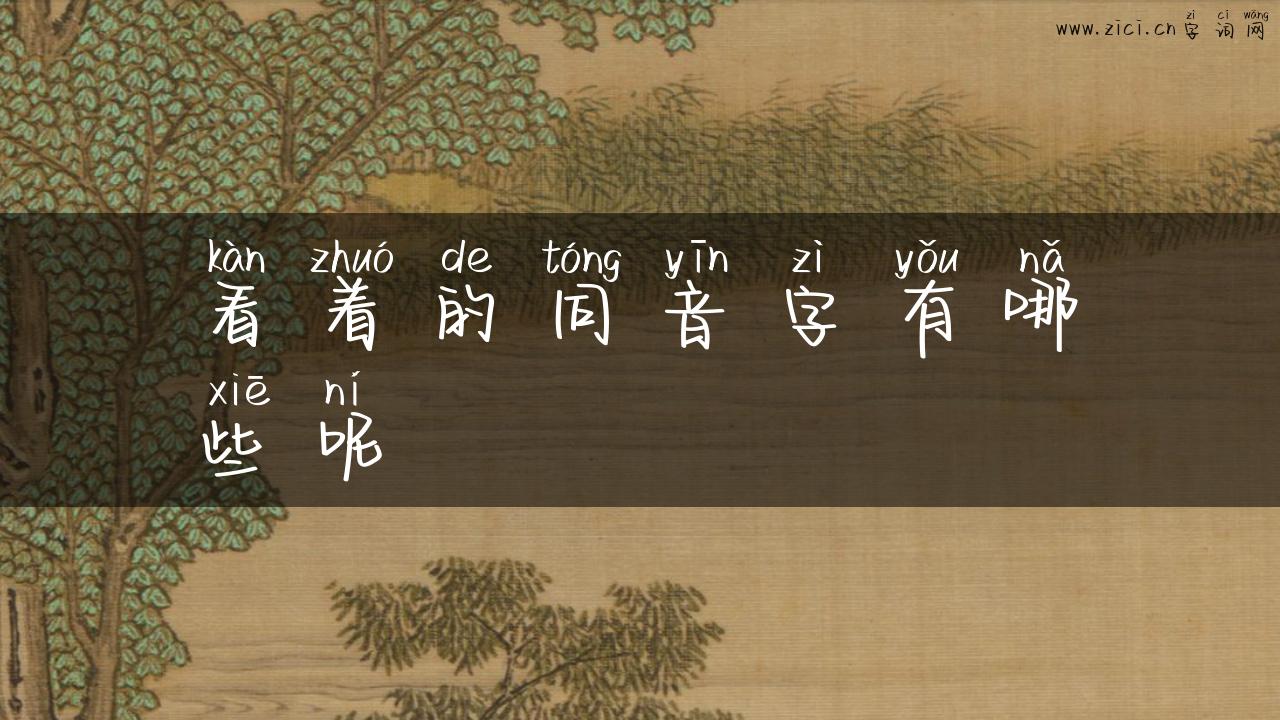 zì cí wǎng
www.zici.cn 字词网
kàn zhuó de tóng yīn zì yǒu nǎ
看着的同音字有哪
xiē ní
些呢